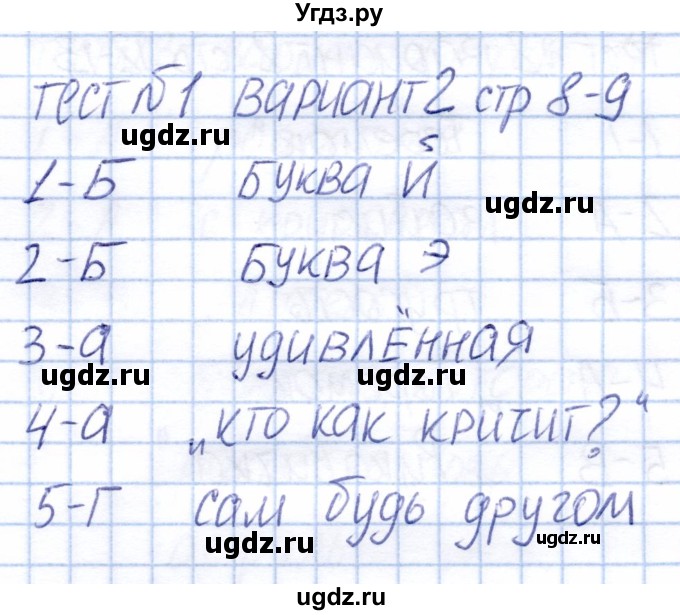 Угдз.ру
тест №1 вариант 2 стр 8-9
ugdz.ru
1-Б буква Й
ugdz.ru
2-Б буква Э
ugdz.ru
3-а удивлённая
ugdz.ru ugdz.ru
4-а „кто как кричит?“
5-Г сам будь другом
ugdz.ru ugdz.ru
ugdz.ru